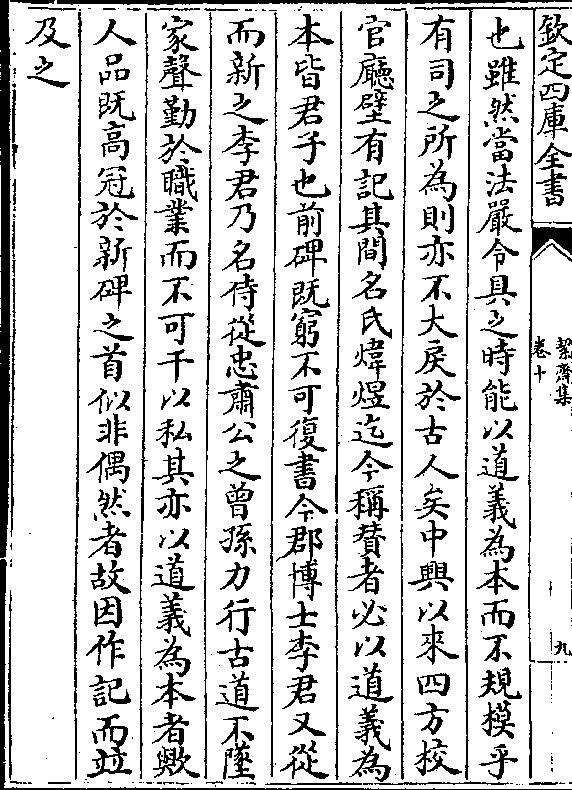 欽定四庫全書
絜齋集
卷十
九
也雖然當法嚴令具之時能以道義為本而不規模乎
有司之所為則亦不大戾於古人矣中興以來四方校
官廳壁有記其間名氏煒煜迄今稱賛者必以道義為
本皆君子也前碑既窮不可復書今郡博士李君又從
而新之李君乃名侍從忠肅公之曾孫力行古道不墜
家聲勤於職業而不可干以私其亦以道義為本者歟
人品既高冠於新碑之首似非偶然者故因作記而竝
及之